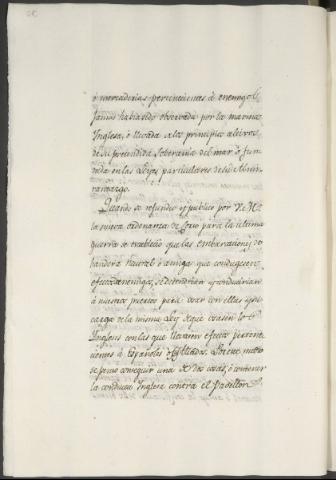 ó mercaderias pertenecientes á enemigos,
jamas habia sido observada por la marina
Inglesa, ó llevada a los principios altivos
de su pretendida soberania del mar ó fun
dada en las Leyes particulares de su Almi
rantazgo.
Quando se refundió y publicó por V. M.
la nueva ordenanza de Corso para la ultima
guerra se estableció que las embarcaciones de
bandera neutral ó amiga que conduxesen
efectos enemigos, se detendrian y conducirian
á nuestros puertos para usar con ellas en su
cargo de la misma Ley de que usasen los
Ingleses con las que llevaren efectos pertene
cientes á Españoles ó Aliados. Por este medio
se penso conseguir una de dos cosas, ó contener
la conducta Inglesa contra el Pavellon